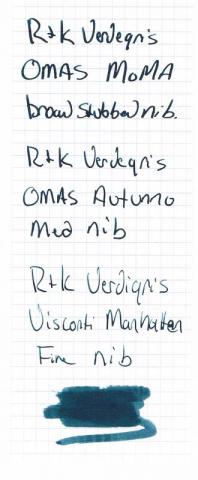 R+K Verdegris
OMAS MoMA
broad stubbed nib.
R+K Verdegris
OMAS Autumo
Med nib
R+K Verdigris
Visconti Manhatten
Fine nib